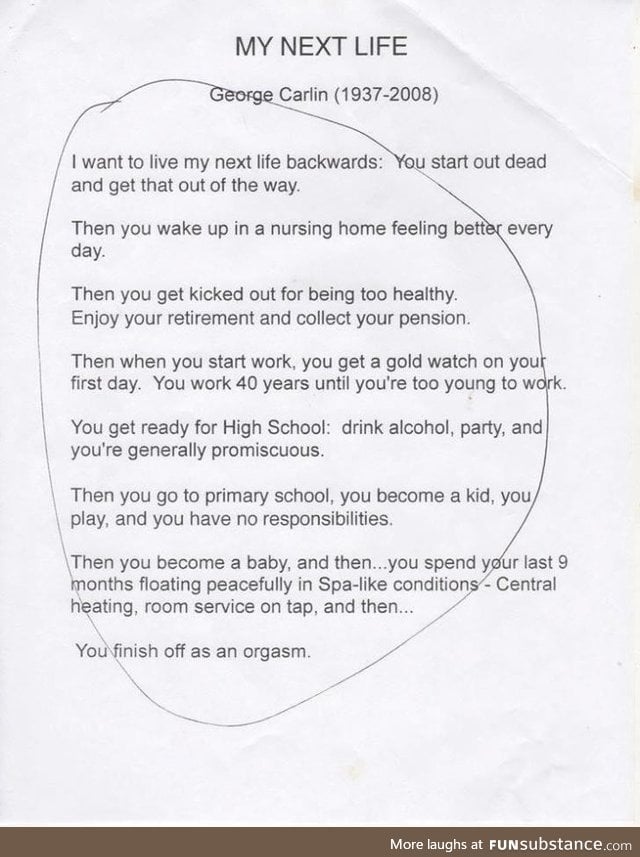 MY NEXT LIFE
George Carlin (1937-2008)
I want to live my next life backwards:  You start out dead
and get that out of the way.
Then you wake up in a nursing home feeling better every
day.
Then you get kicked out for being too healthy.
Enjoy your retirement and collect your pension.
Then when you start work, you get a gold watch on your
first day.  You work 40 years until you're too young to work.
You get ready for High School:  drink alcohol, party, and
you're generally promiscuous.
Then you go to primary school, you become a kid, you
play, and you have no responsibilities.
Then you become a baby, and then...you spend your last 9
months floating peacefully in Spa-like conditions - Central
heating, room service on tap, and then...
You finish off as an orgasm.
More laughs at FUNsubstance.com